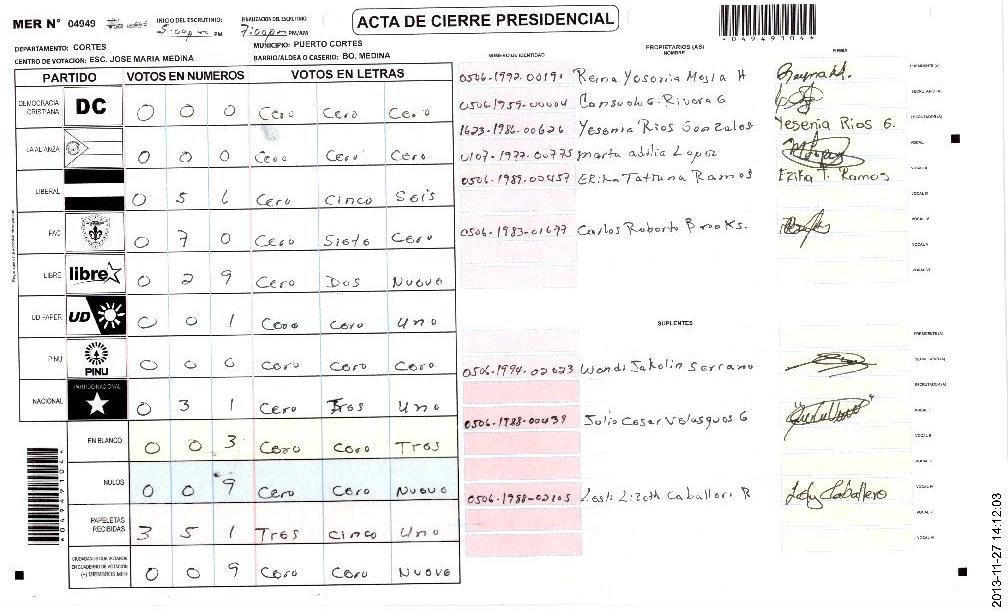 MER N° 04949
INICIO DEL ESCRUTINIO: 5:00 pm PM
FINALIZACION DEL ESCRUTINIO: 7:00 pm PM/AM
ACTA DE CIERRE PRESIDENCIAL
04949104
DEPARTAMENTO: CORTES
MUNICIPIO: PUERTO CORTES
CENTRO DE VOTACION: ESC. JOSE MARIA MEDINA
BARRIO/ALDEA O CASERIO: BO. MEDINA
NUMERO DE IDENTIDAD
PROPIETARIOS (AS)
NOMBRE
FIRMA
PARTIDO VOTOS EN NUMEROS VOTOS EN LETRAS
DEMOCRACIA CRISTIANA DC 0 0 0 Cero Cero Cero
LA ALIANZA 0 0 0 Cero Cero Cero
LIBERAL 0 5 6 Cero Cinco Seis
PAC 0 7 0 Cero Siete Cero
LIBRE libre 0 2 9 Cero Dos Nueve
UD FAPER UD 0 0 1 Cero Cero Uno
PINU PINU 0 0 0 Cero Cero Cero
NACIONAL PARTIDO NACIONAL 0 3 1 Cero Tres Uno
EN BLANCO 0 0 3 Cero Cero Tres
NULOS 0 0 9 Cero Cero Nueve
PAPELETAS RECIBIDAS 3 5 1 Tres Cinco Uno
CIUDADANOS QUE VOTARON EN CUADERNO DE VOTACION (+) MIEMBROS MER 0 0 9 Cero Cero Nueve
0506-1992-00191 Reina Yosonia Mejia H PRESIDENTE (A)
0506-1959-00004 Consuelo G. Rivera G SECRETARIO (A)
1623-1986-00626 Yesenia Rios Gonzales Yesenia Rios G. ESCRUTADOR (A)
0107-1977-00775 Marta adilia Lopez VOCAL I
0506-1989-00457 Erika Tatiana Ramos Erika T. Ramos VOCAL II
VOCAL III
0506-1983-01677 Carlos Roberto Brooks. VOCAL IV
VOCAL V
VOCAL VI
SUPLENTES
PRESIDENTE (A)
0506-1994-02023 Wendi Jakolin Serrano SECRETARIO (A)
ESCRUTADOR (A)
0506-1988-00439 Julio Cesar Velasques G VOCAL I
VOCAL II
VOCAL III
0506-1988-02105 Lesli Lizeth Caballero R Lesly Caballero VOCAL IV
VOCAL V
VOCAL VI
04949104
2013-11-27 14:12:03